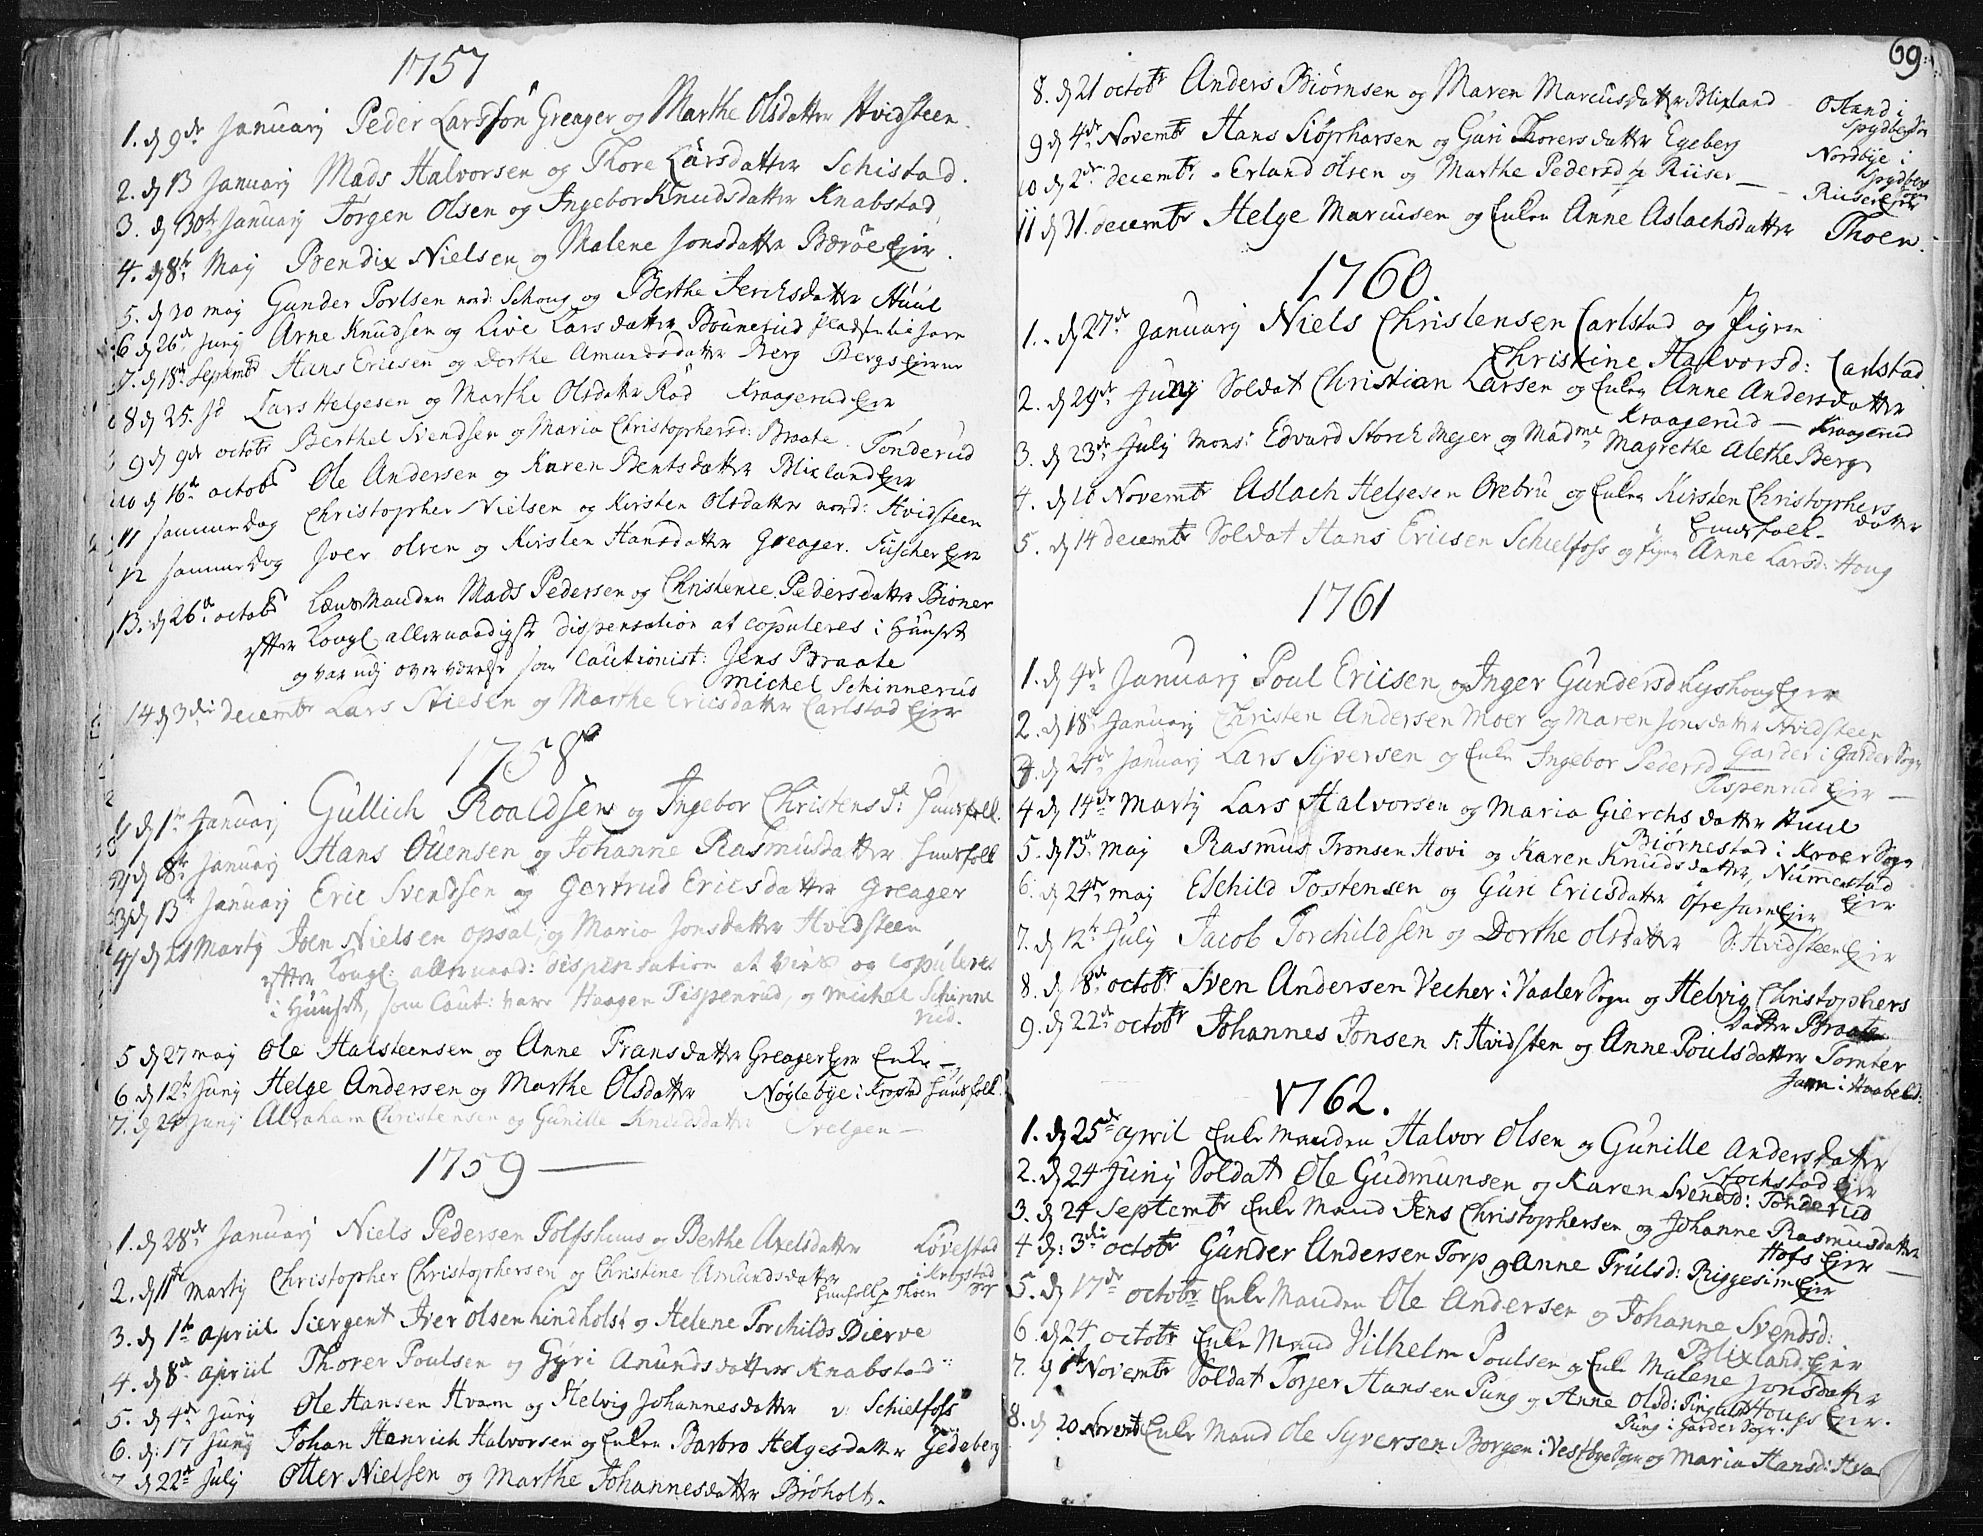 1757
1. d 9de Januarj Peder Larssøn Greager og Marthe Olsdatter Hvidsteen
2. d 13 Januarj Mads Halvorsen og Thore Larsdatter Schistad.
3. d 30te Januarj Jørgen Olsen og Ingebor Knudsdatter Knabstad
4. d 8de Maj Bendix Nielsen og Malene Jonsdatter Børøe Ejer
5. d 20 maj Gunder Povlsen nord: Schoug og Berthe Jerchsdatter Huul
6 d 26de Junj Arne Knudsen og Live Larsdatter Brunerud
7. d 18de Septembr Hans Ericsen og Dorthe Amundsdatter Berg Bergs Ejerne
8 d 25. Lars Helgesen og Marthe Olsdatter Rød Kraagerud Ejer
9 d 9de octobr Berthel Svendsen og Maria Christophersd: Braate. Tønderud
10 d 16de octob Ole Andersen og Karen Bentsdatter Blixland Ejer
11 sammedag Christopher Nielsen og Kirsten Olsdatter nord: Hvidsteen
12 sammedag Iver olsen og Kirsten Hansdatter Greager. Ejer
13. d 26de octob Lænsmanden Mads Pedersen og Christence Pedersdatter Biøner
efter Kongl allernaadigste dispensation at copuleres i Huuset
og var udj overværelse som Cautionist: Jens Braate
Michel Schinnerud
14 d 3die decembr Lars Stiesen og Marthe Ericsdatter Carlstad Ejer
1758
1 d 1te Januarj Gullich Roaldsen og Ingebor Christensd: Huusfoll.
2 d 8de Januarj Hans Ouensen og Johanne Rasmusdatter Huusfoll
3 d 13de Januarj Eric Svendsen og Gertrud Ericsdatter Greager
4 d 21 Martij Joen Nielsen opsal, og Maria Jonsdatter Hvidsteen
efter Kongl: allernaad: dispensation at vies og copuleres
i Huuset, som Caut: vare Haagen Tispenrud, og Michel Schinne
rud.
5 d 27 maj Ole Halsteensen og Anne Fransdatter Greager Ejer Enke
6 d 12te Junj Helge Andersen og Marthe Olsdatter Nøglebye i Krogstad Huusfoll
7. d 24 Junj Abraham Christensen og Gunille Knudsdatter
1759
1. d 28de Januarj Niels Pedersen Tolfshuus og Berthe Axelsdatter Løvestad
i Krogstad
2. d 11te Martij Christopher Christophersen og Christine Amundsdatter
Huusfoll p Thoen
3. d 1te Apriil Siergent Iver olsen Lindholst og Helene Torchilds Dierve
4. d 8de Apriil Thorer Poulsen og Gyri Amundsdatter Knabstad
5. d 4de Junj Ole Hansen Hvam og Helvig Johannesdatter v: Schielfoss
6. d: 17 Junj Johan Henrich Halvorsen og Enken Barbro Helgesdatter Gedeberg
7 d 22de Julj Otter Nielsen og Marthe Johannesdatter Brøholt.
69
8. d 21 octobr Anders Biørnsen og Maren Marcusdatter Blixland Østland i
Spydberg
9 d 4de Novembr Hans Siøpharsen og Guri Thorersdatter Egeberg Nordbye i
Spydberg
10 d 2den decembr Erland Olsen og Marthe Pedersd p Riiser Riiser Ejer
11 d 31. decembr Helge Marcusen og Enken Anne Aslachsdatter Thoen.
1760.
1. d 27de Januarj Niels Christensen Carlstad og Pigen
Christine Halvorsd: Carlstad
2. d 29de Junj Soldat Christian Larsen og Enken Anne Andersdatter
Kraagerud — Kraagerud
3. d 23de Julj Mons: Edvard Storch Mejer og Madme Magrethe Alethe Berg
4. d 11 Novembr Aslach Helgesen Orebru og Enken Kirsten Christophers
datter
Huusfoll.
5. d 14 decembr Soldat Hans Ericsen Schielfoss og pigen Anne Larsd: Houg
1761
1. d 4de Januarj Poul Ericsen og Inger Gundersd Lyshoug Ejer
2. d 18de Januarj Christen Andersen Moer og Maren Jonsdatter Hvidsteen
Garder i Garder Sogn
3. d 24de Januarj Lars Syversen og Enke Ingebor Pedersd
Tispenrud Ejer
4 d 14de Martij Lars Halvorsen og Maria Gierchsdatter Huul
Biørnestad i Kroer Sogn
5. d 13. Maj Rasmus Tronsen Hovi og Karen Knudsdatter, Nummestad
Ejer
6. d 24de Maj Eschild Tostensen og Guri Ericsdatter Øfre Jarn Ejer
7. d 12te Julj Jacob Torchildsen og Dorthe Olsdatter S: Hvidsteen Ejer
8. d 18de octobr Sven Andersen Vecher i Vaaler Sogn og Helvig Christophers
datter Braate
9. d 22de octobr Johannes Jonsen S: Hvidsten og Anne Poulsdatter Tomter
i Haabeld.
1762.
1. d 25de april Enke Manden Halvor Olsen og Gunille Andersdatter
Stochstad Ejer
2. d 24 Junj Soldat Ole Gudmunsen og Karen Svendsd: Tønderud
3. d 24 Septembr Enke Mand Jens Christophersen og Johanne Rasmusdatter
Hofs Ejer
4 d: 3die octobr Gunder Andersen Torp og Anne Truelsd: Risgesim Ejer
5. d 17de octobr Enke Manden Ole Andersen og Johanne Svendsd:
Blixland Ejer
6. d 24 octobr Enke Mand Vilhelm Poulsen og Enke Malene Jonsdatter
Hougs Ejer.
7. d 1te Novembr Soldat Torjer Hansen Pung og Anne Olsd:
Pung i Garder Sogn.
8. d 20 Novembr Enke Mand Ole Syversen Borgen i Vestbye Sogn og Maria Hansd: Hva